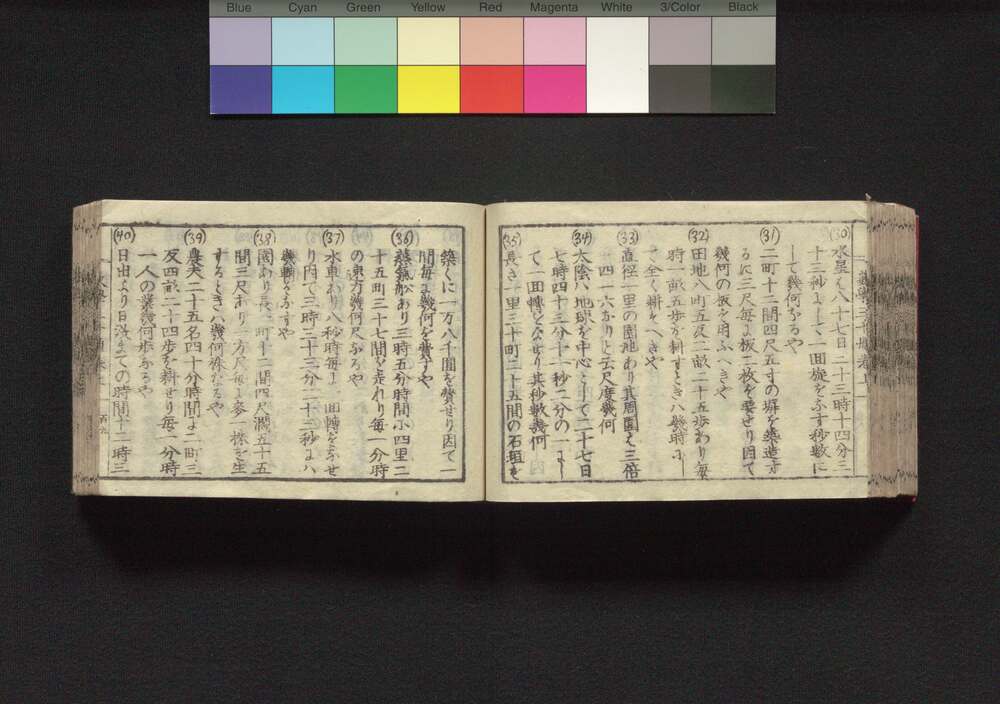 Blue Cyan Green Yellow Red Magenta White 3/Color Black
(30) 水星ハ八十七日二十三時十四分三
十三秒ニして一回旋をなす秒数に
して幾何なるや
(31) 二町十二間四尺五寸の塀を築造す
るに三尺毎に板二枚を要せり因て
幾何の板を用ふべきや
(32) 田地八町五反二畝二十五歩あり毎
時一畝五歩を耕すときハ幾時にし
て全く耕すべきや
(33) 直径一里の園地あり其周圍ハ三倍
四一六なりと云尺度幾何
(34) 大陰ハ地球を中心として二十七日
七時四十三分十一秒二分の一にし
て一回轉をなせり其秒数幾何
(35) 長さ一里三十町二十五間の石垣を
築くに一万八千圓を費せり因て一
間毎に幾何を費すや
(36) 蒸気舩あり三時五分時間小四里二
十五町三十七間を走れり毎一分時
の速力幾何尺なるや
(37) 水車あり八秒時毎に一回轉をなせ
り内て三時二十三分二十三秒にハ
幾轉をなすや
(38) 園あり長二町十二間四尺濶五十五
間三尺あり一方尺毎に参一株を生
するときハ幾何株なるや
(39) 農夫二十五名四十分時間に二町三
反四畝二十四歩を耕せり毎一分時
一人の業幾何歩なるや
(40) 日出より日没までの時間十二時三